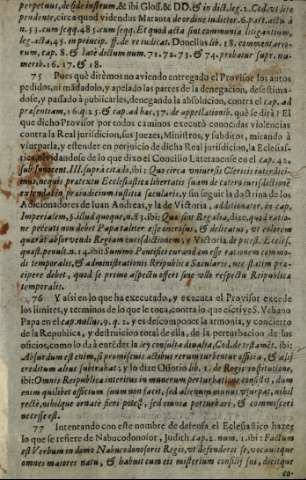 perpetuus, de fide instrum, & ibi Gloss. & DD. & in dict. leg. 2. Cod. vt lite
pendente, circa quod videndus Maranta de ordine iudicior. 6. part. actu à
n. 53. cum seqq. 485. cum seqq. Et quod acta sint communia litigantium,
leg. acta, 45. in princip. ff. de re iudicat. Donellus lib. 18. commentario-
rum, cap. 8. & late dictum num. 71. 72. 73. & 74. probatur supr. nu-
mero. 16. 17. & 18.
75 Pues què dirèmos no aviendo entregado el Provisor los autos
pedidos, ni mãdadolo, y apelado las partes de la denegacion, desestima-
dose, y passado à publicarles, denegando la absolucion, contra el cap. ad
præsentiam, 16. q. 3. & cap. ad hæc, 17. de appellationib. què se dirà? El
que dicho Provisor por todos caminos executò conocidas violencias
contra la Real jurisdicion, sus Juezes, Ministros, y subditos, mirando à
vsurparla, y estender en perjuicio de dicha Real jurisdicion, la Eclesias-
tica, olvidandose de lo que dixo el Concilio Lateranense en el cap. 42.
sub Innocent. III. suprà citado, ibi: Quo circa vniversis Clericis interdici-
mus, nequis prætextu Ecclesiasticæ libertatis suam de cætero iurisdictionē
extendat in præiudicium iustitiæ sæcularis, y sin seguir la doctrina de los
Adicionadores de Iuan Andreas, y la de Victoria, additionator. in cap.
Imperialem, §. illud quoque, n. 83. ibi: Quæ sint Regalia, dixe, quod ratio-
ne peccati non debet Papa taliter esse onerosus, & delicatus, vt colorem
quærat absorvendi Regiam iurisdictionem; y Victoria, de potest. Eccles.
quæst. penult. n. 14. ibi: Summo Pontifici curandum esse ratione commo-
di temporalis, & administrationis Reipublicæ Sæcularis, nec statim præ-
cipere debet, quod se prima aspectu offert sine vllo respectu Reipublicæ
temporalis.
76 Y assi en lo que ha executado, y executa el Provisor excede
los limites, y terminos de lo que le toca, contra lo que escrive S. Vrbano
Papa en el cap. nullis, 9. q. 2. y es descomponer la armonìa, y concierto
de la Republica, y destruicion total de ella, de la perturbacion de los
oficios, como lo dà à entēder la ley consulta divalia, Cod. de testamēt. ibi:
Absurdum est enim, si promiscuis actibus rerum turbentur officia, & alij
creditum alius subtrahat; y lo dize Ossorio lib. 1. de Regis institutione,
ibi: Omnis Reipublicæ interitus in munerum perturbatione consistit, dum
enim quilibet officium suum non facit, sed alienum munus vsurpat, nihil
rectè, nihilque ornatè fieri potest, sed omnia perturbari, & commisceri
necesse est.
77 Intentando con este nombre de defensa el Eclesiastico hazer
lo que se refiere de Nabucodonosor, Judich. cap. 2. num. 1. ibi: Factum
est Verbum in domo Nabucodonosoris Regis, vt defenderet se, vocavitque
omnes maiores natu, & habuit cum eis mysterium consilij sui, dixitque
co-